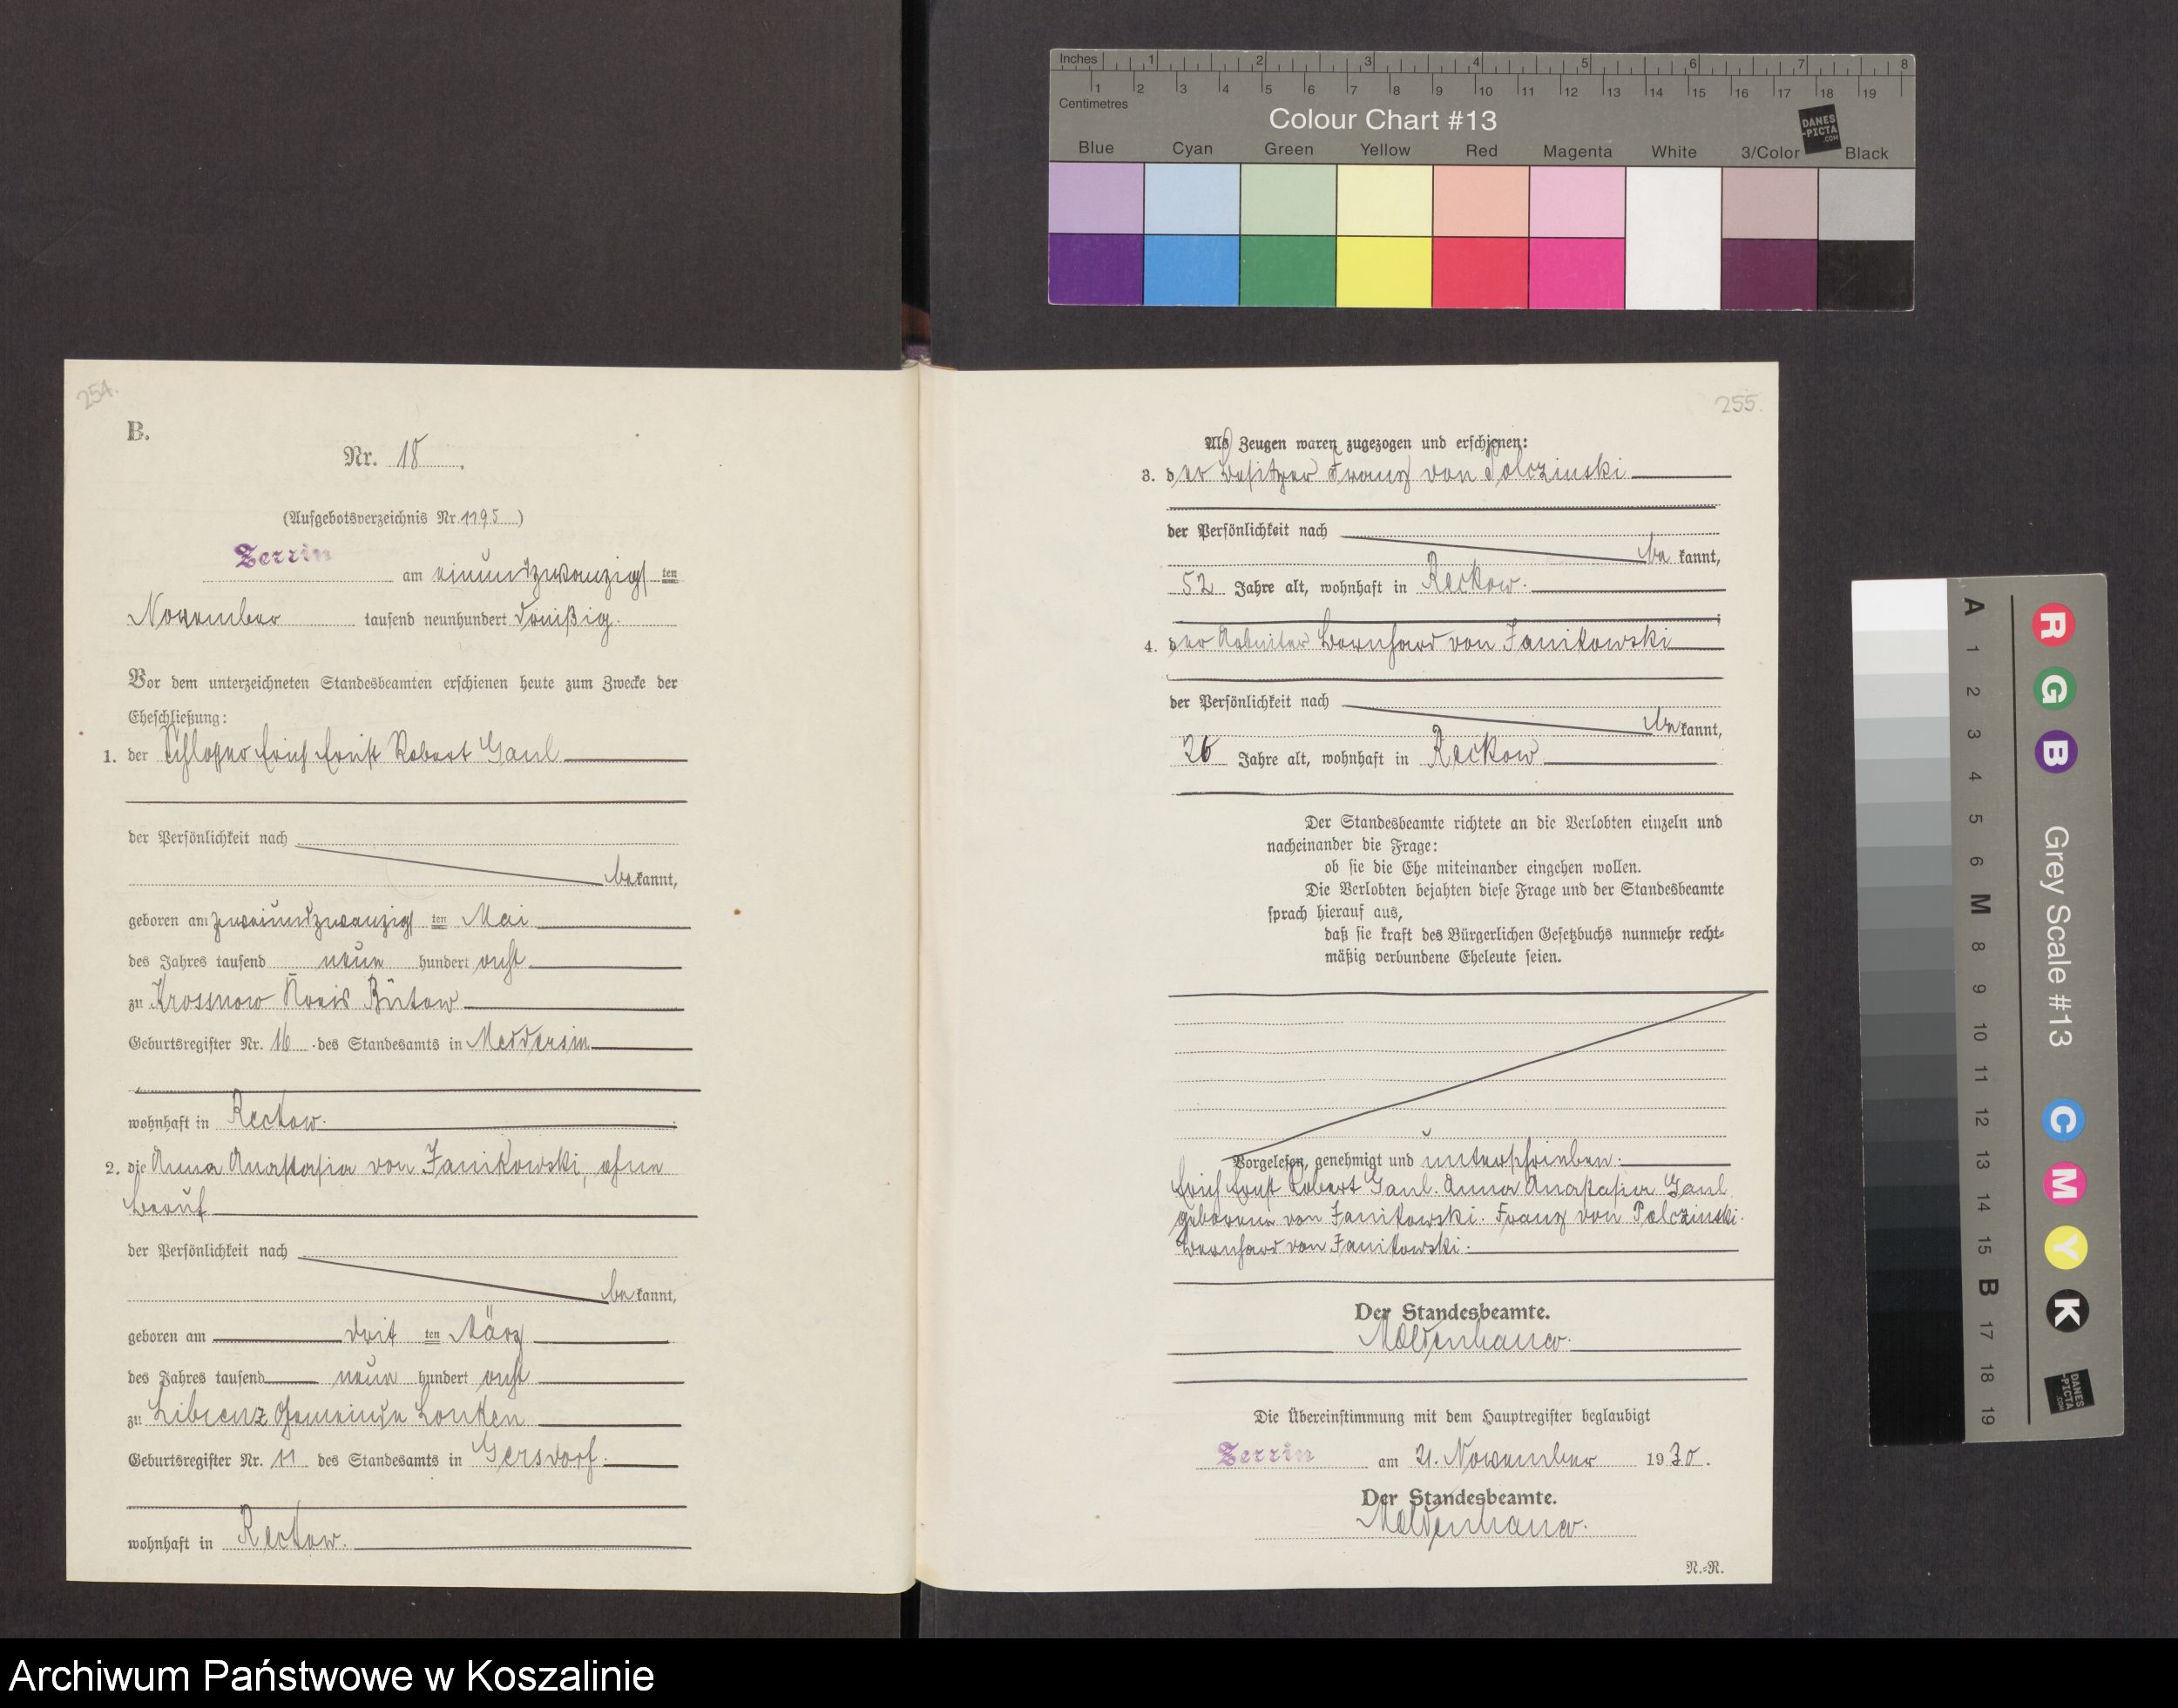 Inches 1 2 3 4 5 6 7 8
1 2 3 4 5 6 7 8 9 10 11 12 13 14 15 16 17 18 19
Centimetres
Colour Chart #13
DANES
-PICTA
.COM
Blue Cyan Green Yellow Red Magenta White 3/Color Black
254.
B.
Nr. 18.
(Aufgebotsverzeichnis Nr. 1195)
Zerrin am einundzwanzigsten
November tausend neunhundert dreißig.
Vor dem unterzeichneten Standesbeamten erschienen heute zum Zwecke der
Eheschließung:
1. der Schlosser Erich Ernst Robert Gaul
der Persönlichkeit nach
bekannt,
geboren am zweiundzwanzigsten Mai
des Jahres tausend neunhundert acht
zu Krossnow Kreis Bütow
Geburtsregister Nr. 16 des Standesamts in Meddersin
wohnhaft in Reckow.
2. die Anna Anastasia von Janikowski, ohne
Beruf
der Persönlichkeit nach
bekannt,
geboren am dritten März
des Jahres tausend neunhundert acht
zu Libienz Gemeinde Lonken
Geburtsregister Nr. 11 des Standesamts in Gersdorf.
wohnhaft in Reckow.
255.
Als Zeugen waren zugezogen und erschienen:
3. der Besitzer Franz von Polczinski
der Persönlichkeit nach
bekannt,
52 Jahre alt, wohnhaft in Reckow.
4. der Arbeiter Bernhard von Janikowski
der Persönlichkeit nach
bekannt,
26 Jahre alt, wohnhaft in Reckow
Der Standesbeamte richtete an die Verlobten einzeln und
nacheinander die Frage:
ob sie die Ehe miteinander eingehen wollen.
Die Verlobten bejahten diese Frage und der Standesbeamte
sprach hierauf aus,
daß sie kraft des Bürgerlichen Gesetzbuchs nunmehr recht-
mäßig verbundene Eheleute seien.
Vorgelesen, genehmigt und unterschrieben.
Erich Ernst Robert Gaul. Anna Anastasia Gaul
geborene von Janikowski. Franz von Polczinski.
Bernhard von Janikowski.
Der Standesbeamte.
Moldenhauer.
Die Übereinstimmung mit dem Hauptregister beglaubigt
Zerrin am 21. November 1930.
Der Standesbeamte.
Moldenhauer.
N.-R.
A 1 2 3 4 5 6 M 8 9 10 11 12 13 14 15 B 17 18 19
R G B Grey Scale #13 C M Y K
DANES
-PICTA
.COM
Archiwum Państwowe w Koszalinie